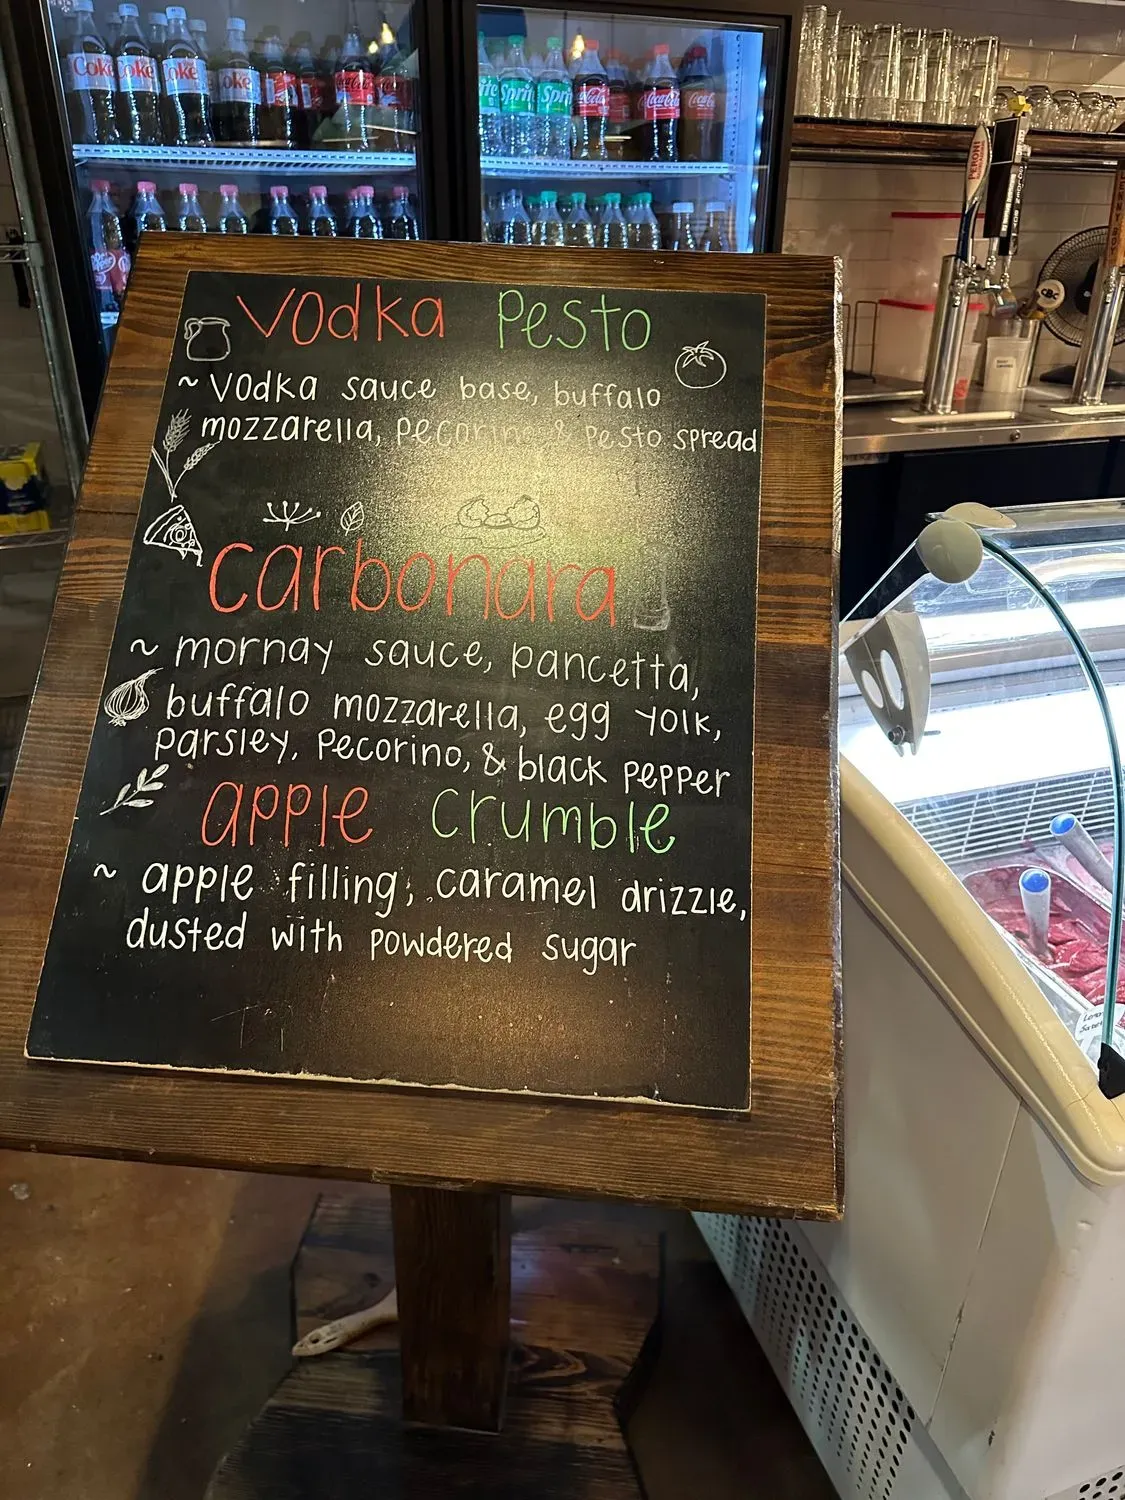 Coke
Coke
Coke
Coke
Coca-Cola
Sprite
Sprite
Sprite
Coca-Cola
Coca-Cola
PERONI
CBC
Vodka Pesto
~ Vodka sauce base, buffalo
mozzarella, pecorino & pesto spread
Carbonara
~ mornay sauce, pancetta,
buffalo mozzarella, egg yolk,
parsley, pecorino, & black pepper
apple crumble
~ apple filling, caramel drizzle,
dusted with powdered sugar